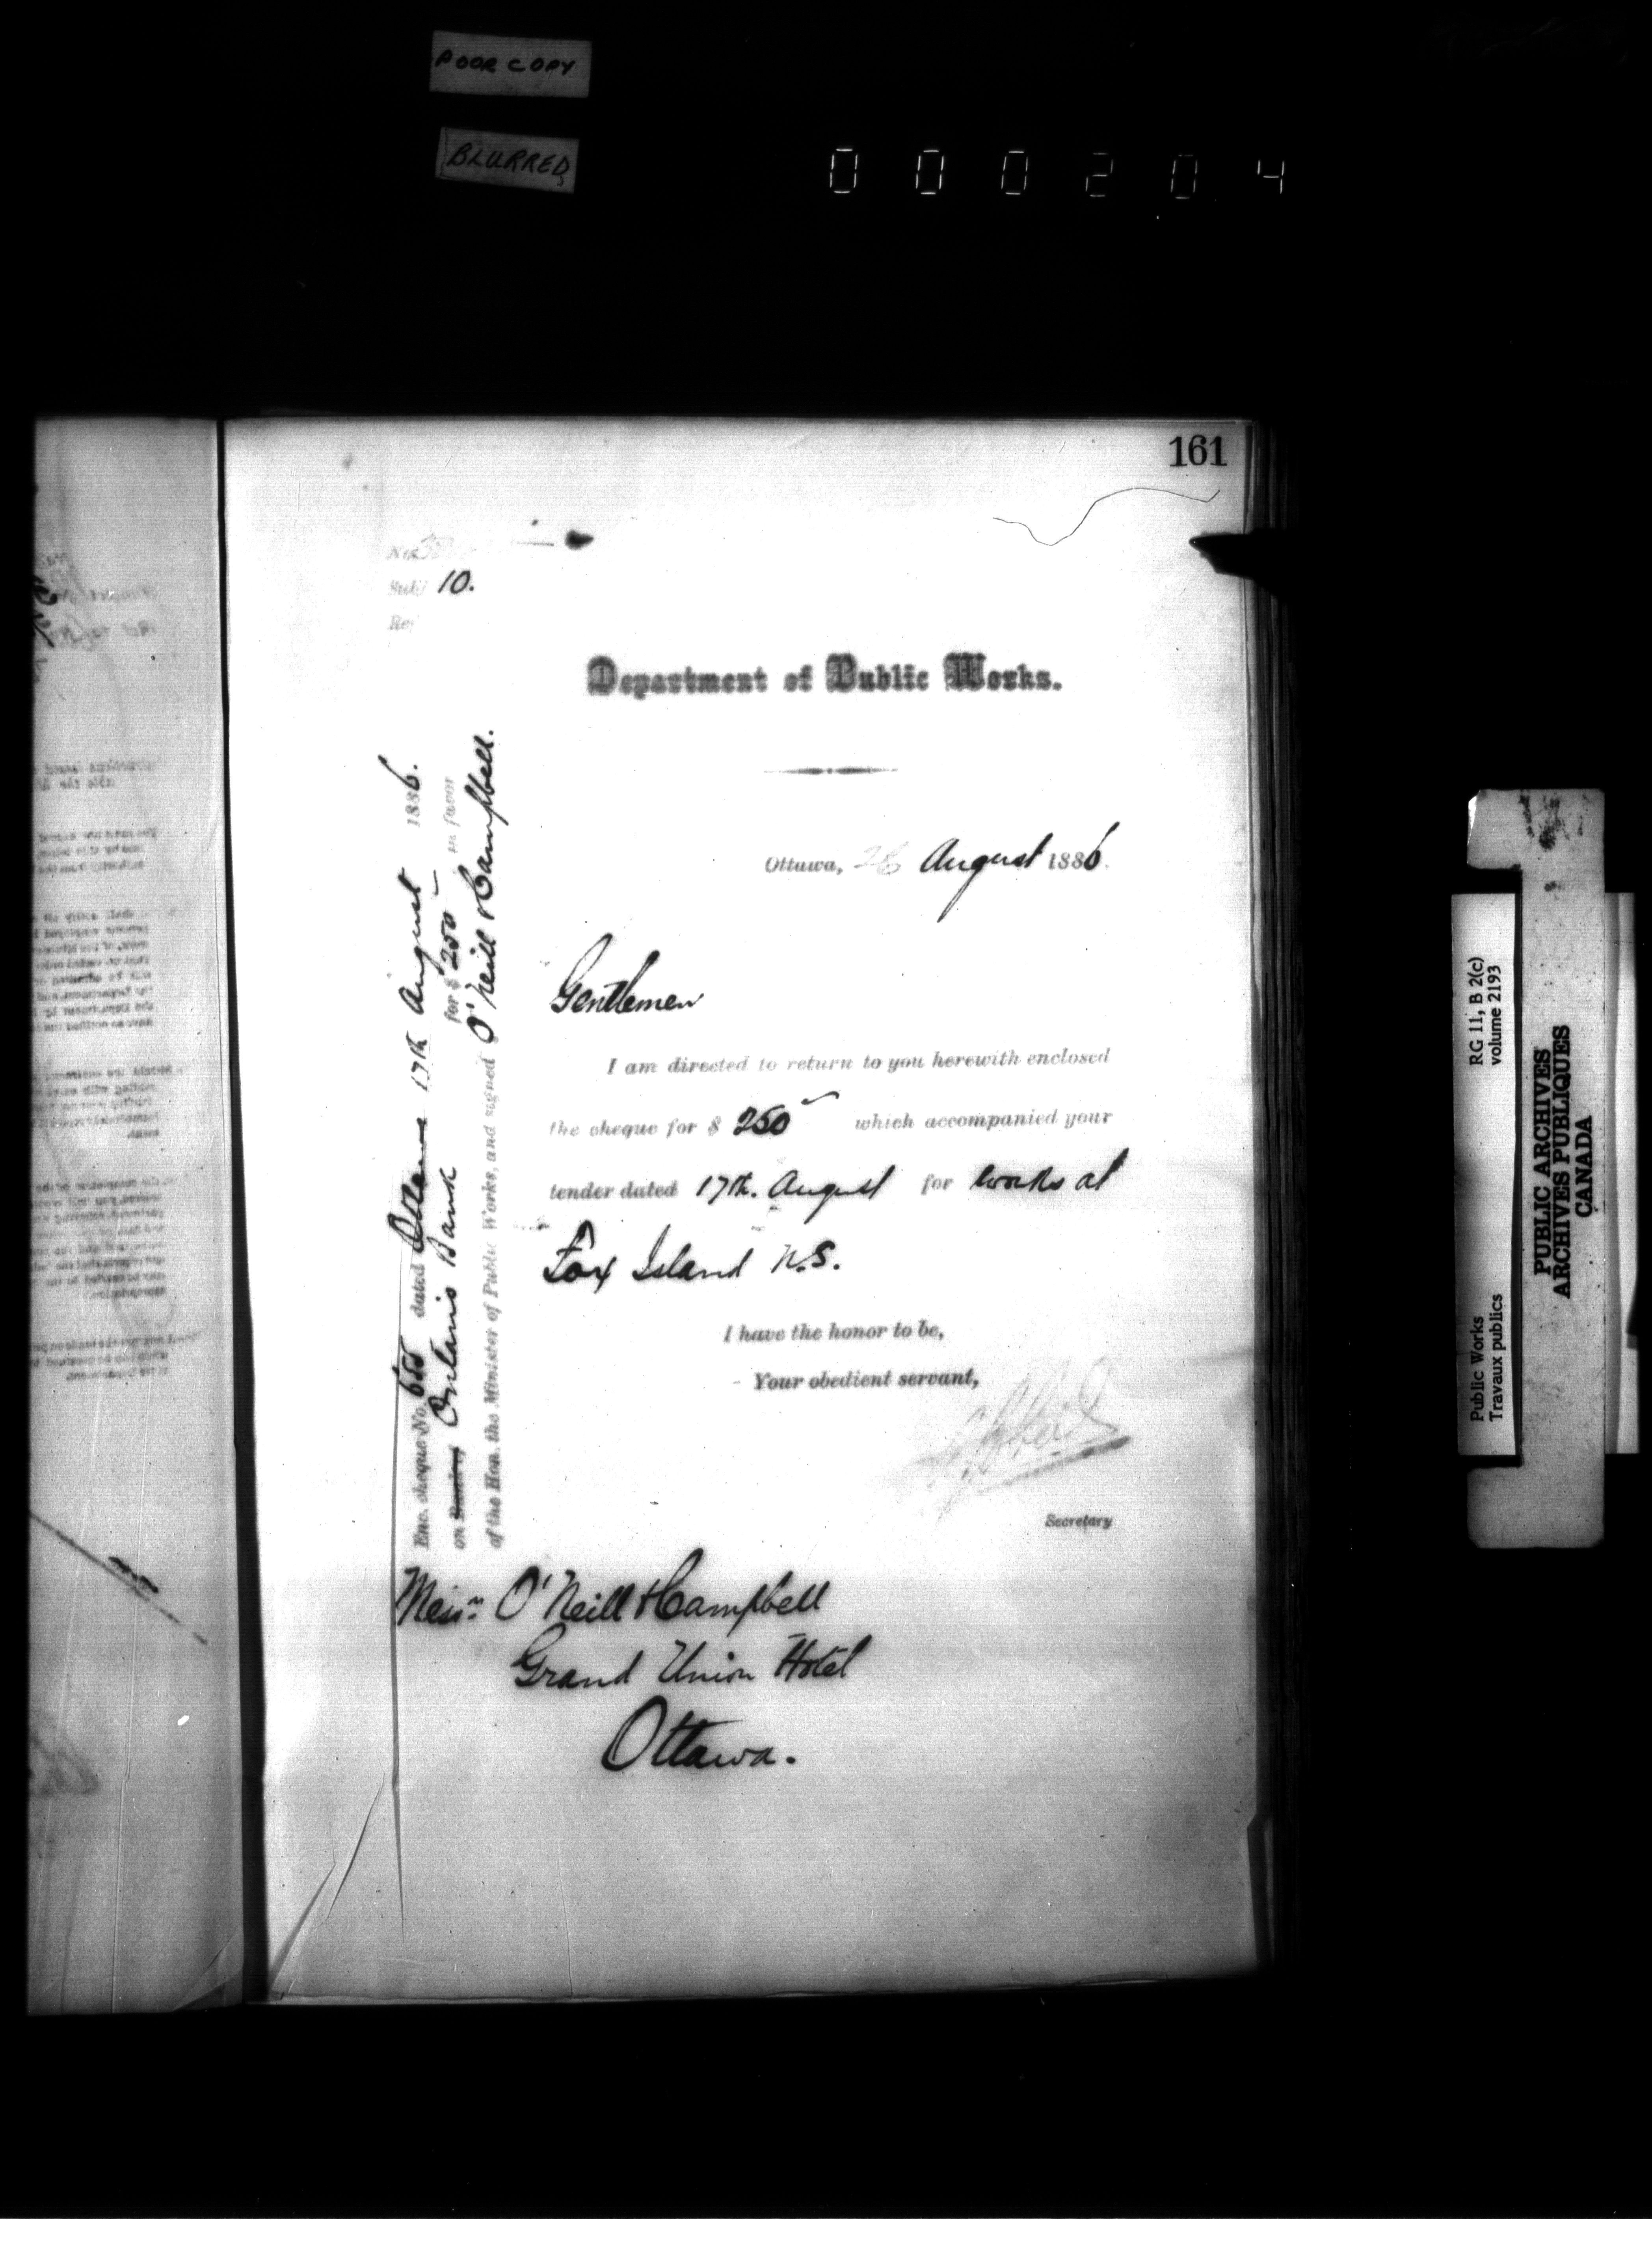 POOR COPY
BLURRED
000204
161
No.
Subj 10.
Ref
Department of Public Works.
Ottawa, 26 August 1886.
Gentlemen
I am directed to return to you herewith enclosed
the cheque for $ 250 which accompanied your
tender dated 17th. August for works at
Fox Island N.S.
I have the honor to be,
Your obedient servant,
Secretary
Messrs O'Neill & Campbell
Grand Union Hotel
Ottawa.
Enc. cheque No. dated Ottawa 17th August 1886.
on Bank of Ontario Bank for $ 250 in favor
of the Hon. the Minister of Public Works, and signed O'Neill & Campbell.
Public Works RG 11, B 2(c)
Travaux publics volume 2193
PUBLIC ARCHIVES
ARCHIVES PUBLIQUES
CANADA